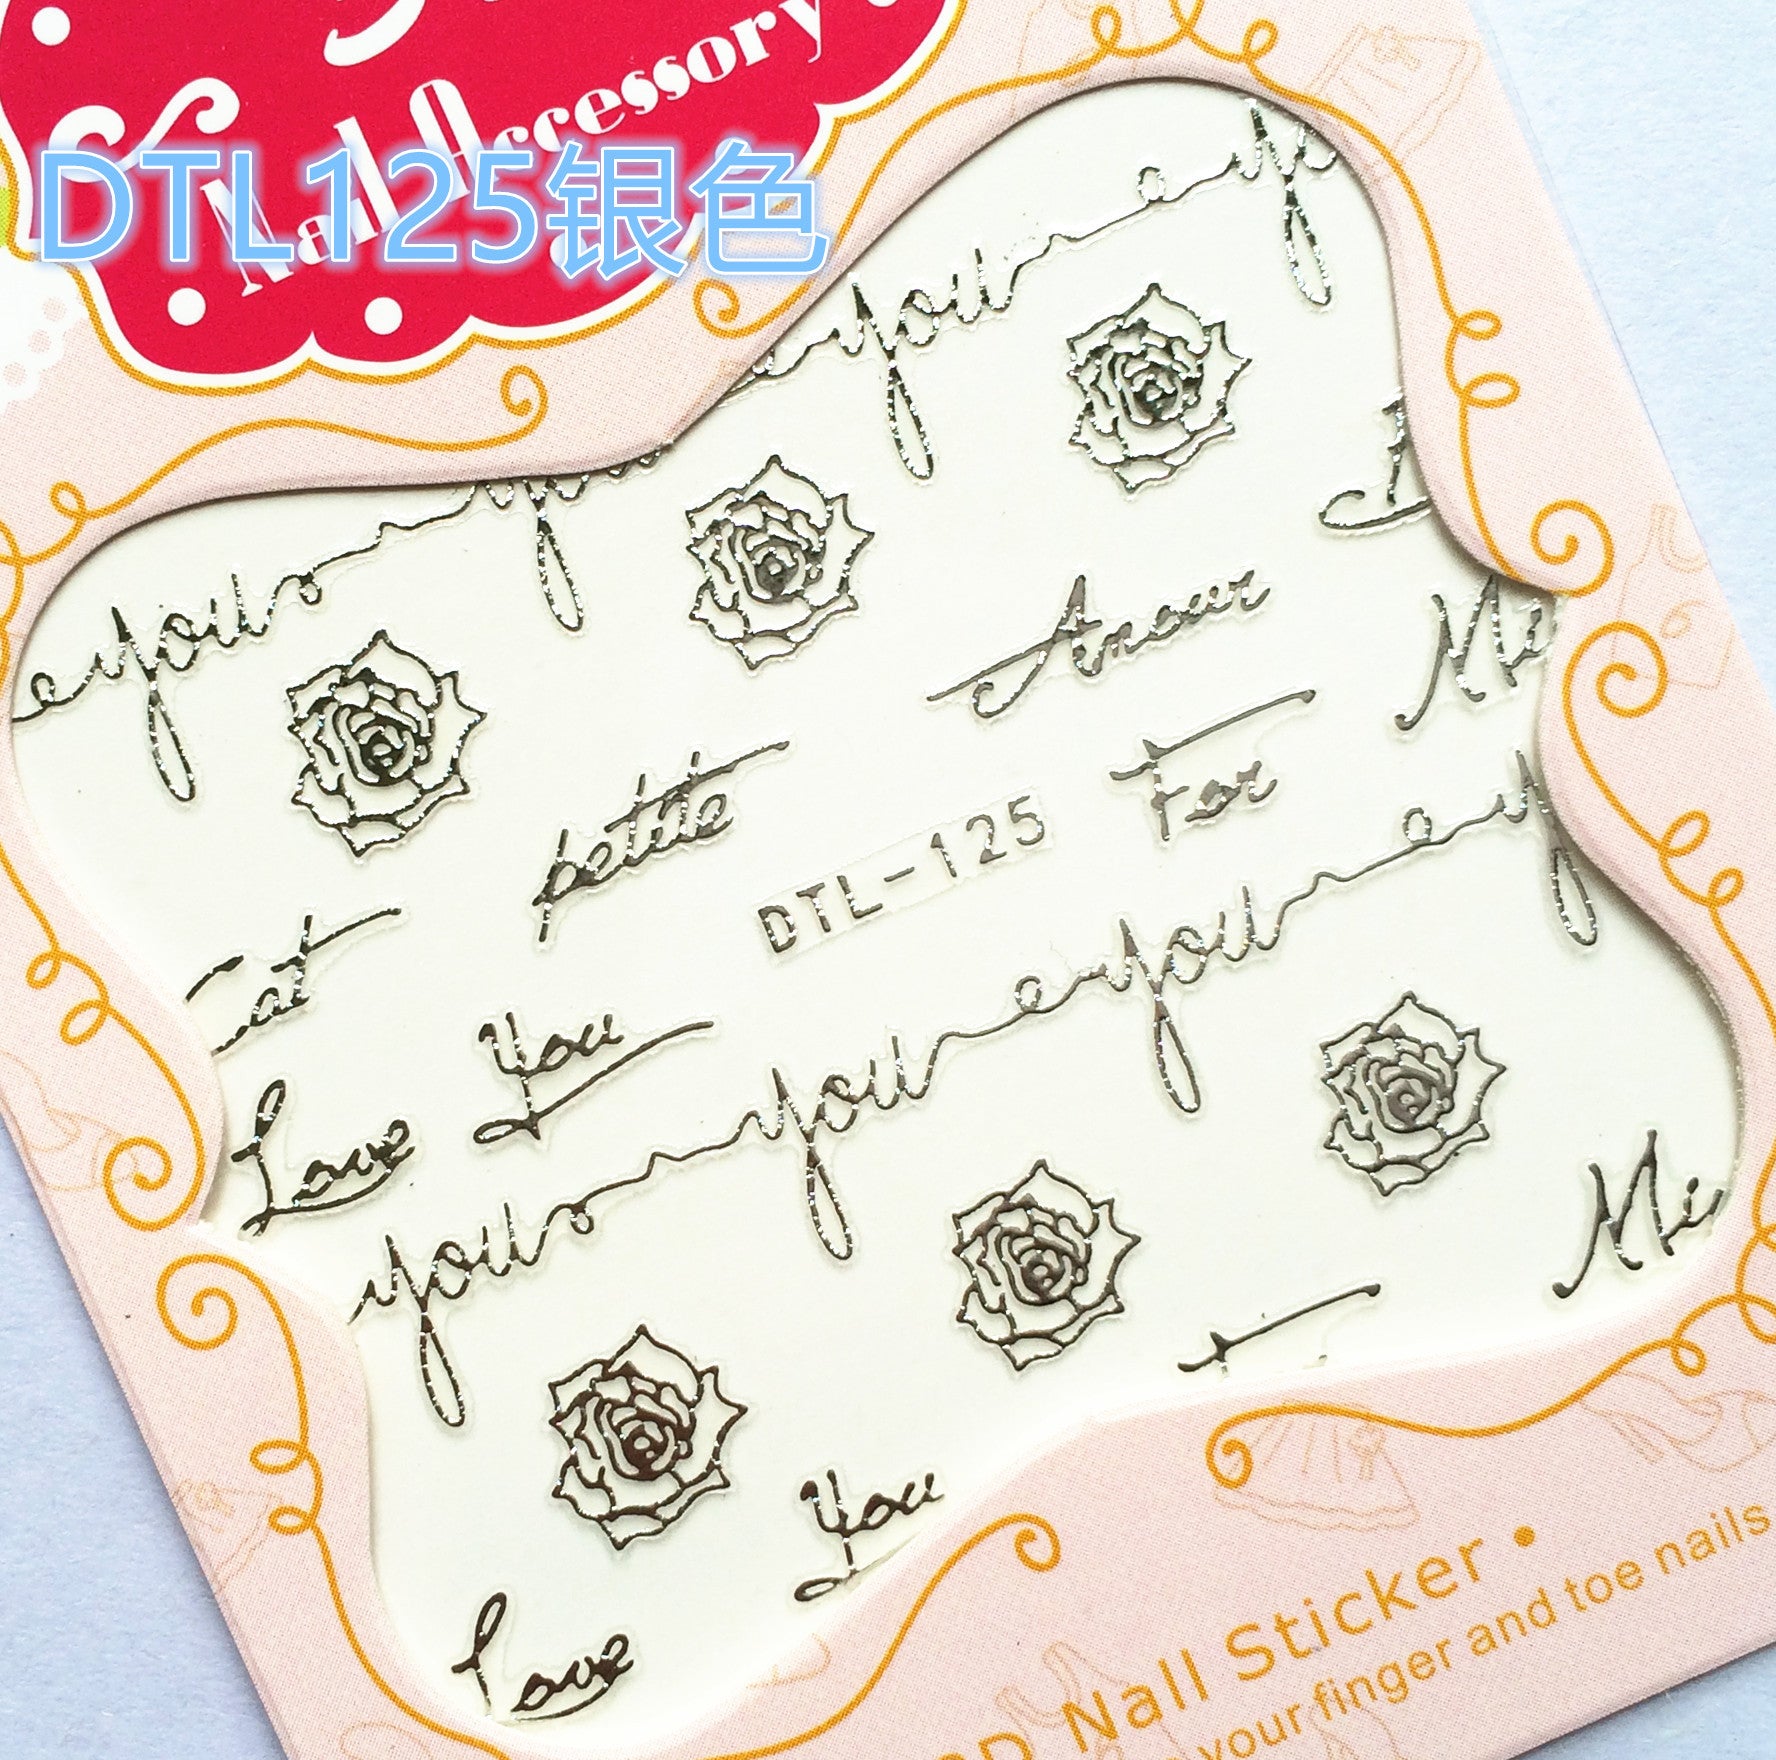 Nail Accessory
DTL125银色
you
you
you
Amour
petite
For
DTL-125
Love
You
you
you
you
You
Love
Nail Sticker •
your finger and toe nails